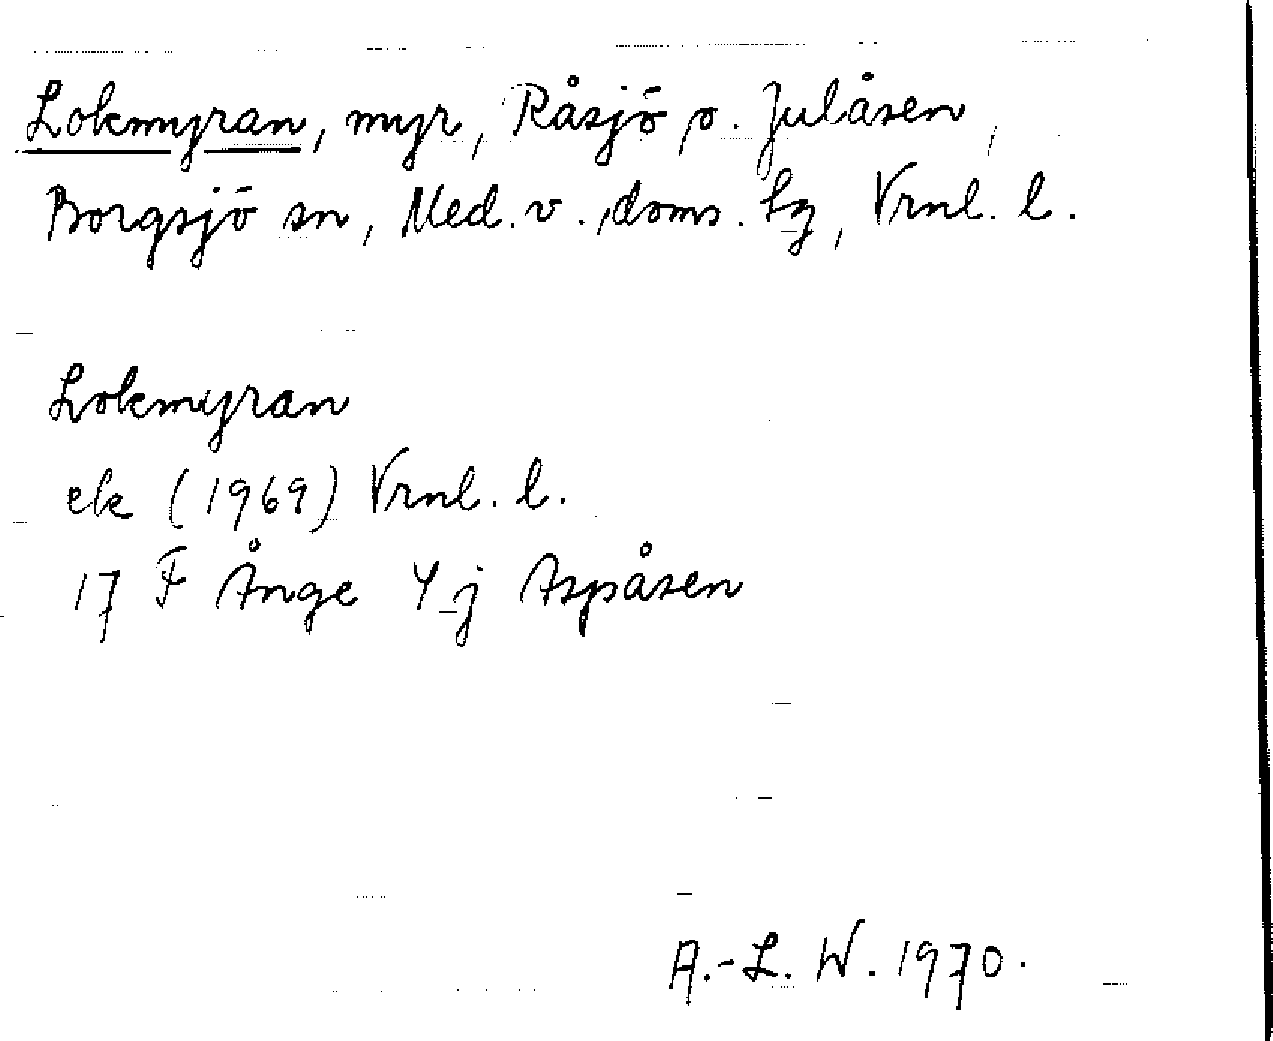 Lokmyran, myr, Råsjö o. Julåsen,
Borgsjö sn, Med. v. doms. tg, Vrnl. l.
Lokmyran
ek (1969) Vrnl. l.
17 F Ånge 4 j Aspåsen
A.-L. W. 1970.